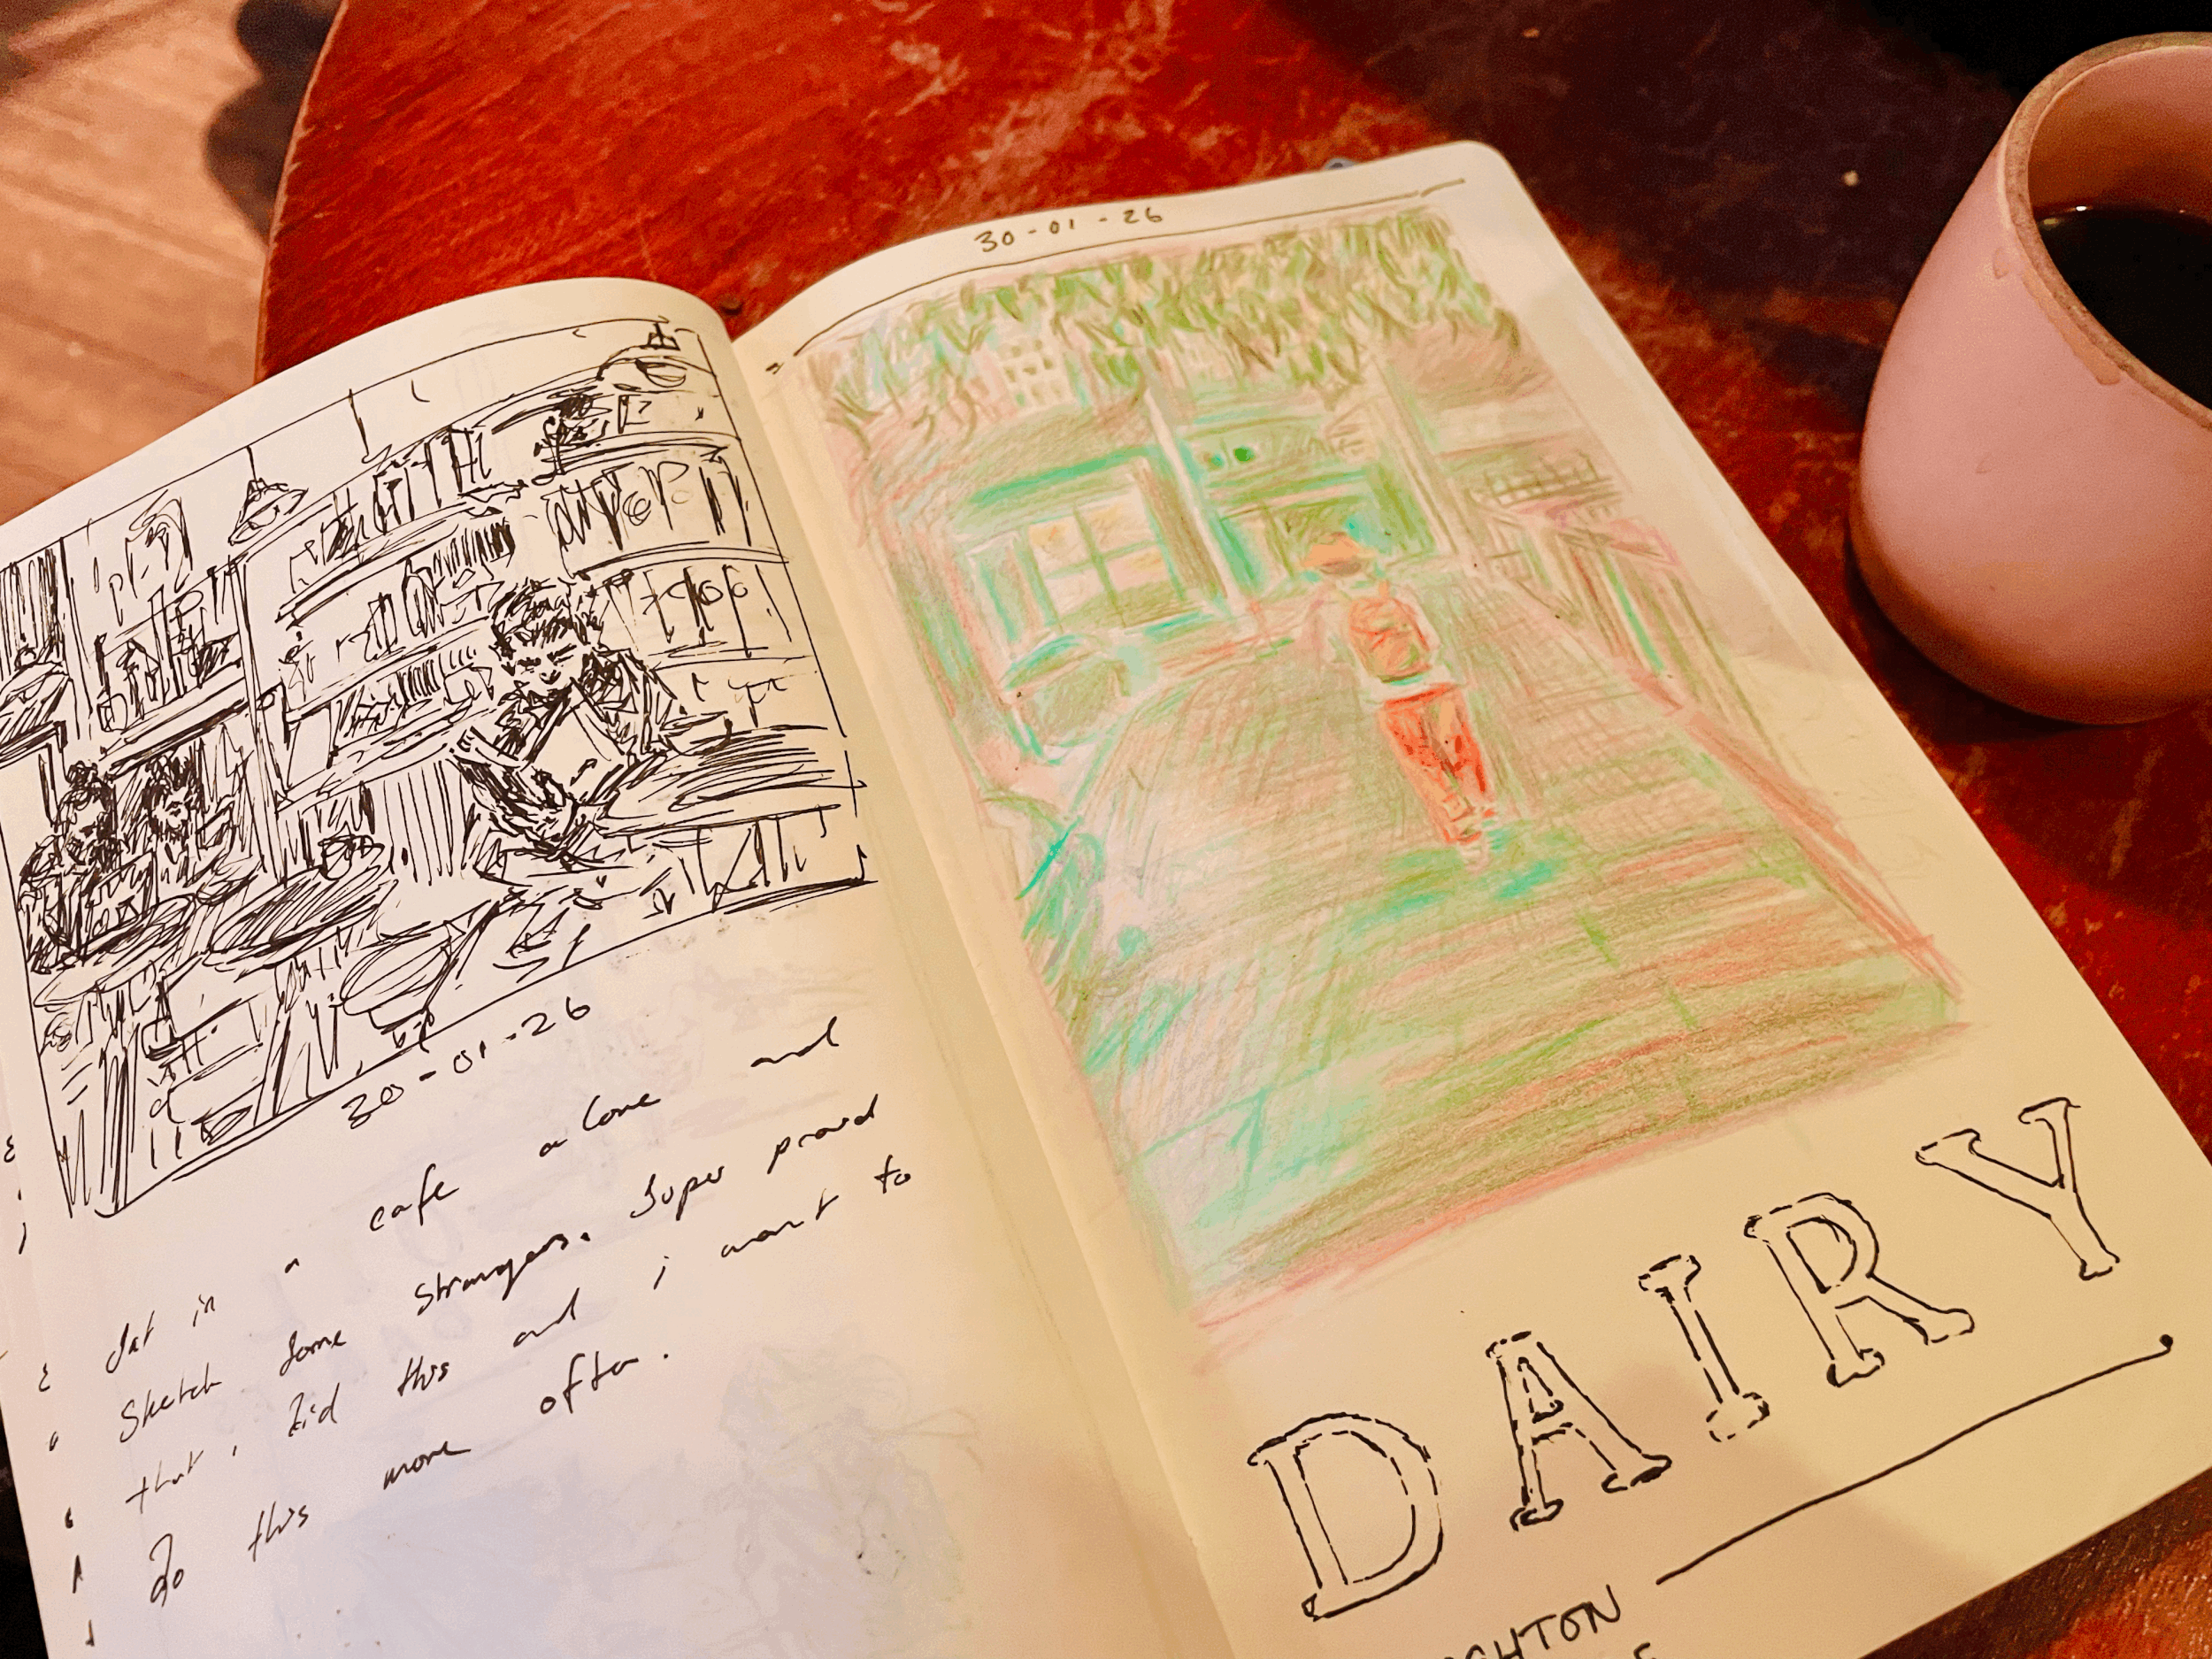 30-01-26
Sat in a cafe alone and
Sketch some strangers. Super proud
that i did this and i want to
do this more often.
30-01-26
DAIRY
GHTON